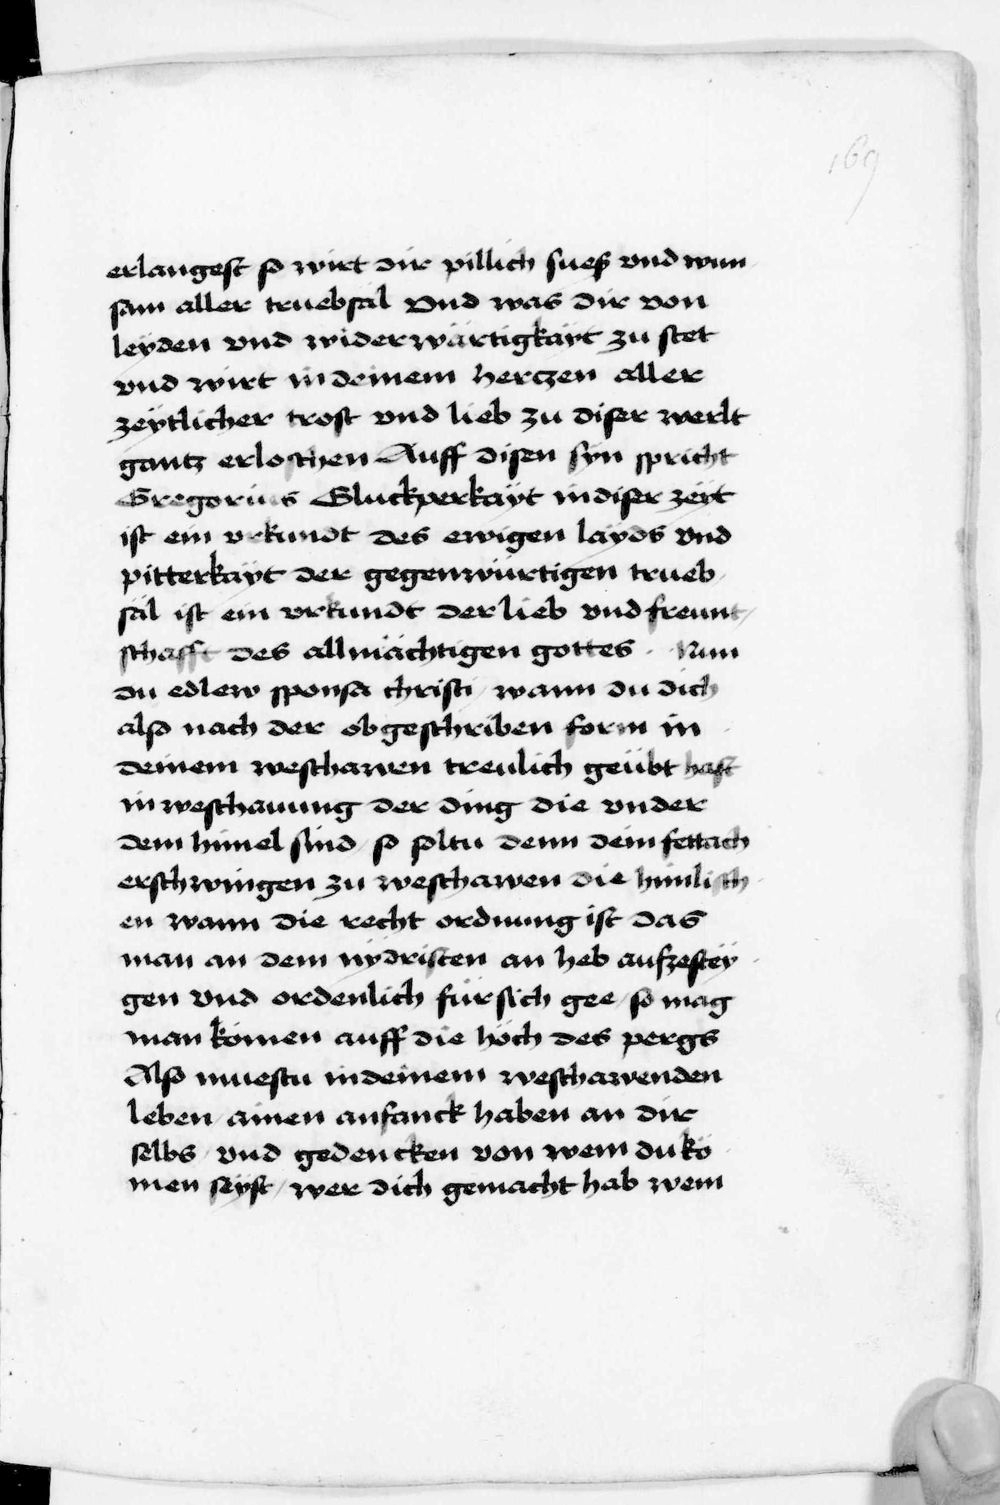 169
erlangest so wirt dir pillich suess vnd wun
sam aller truebsäl Vnd was dir von
leÿden vnd widerwärtigkaÿt zu stet
vnd wirt in deinem herczen aller
zeÿtlicher trost vnd lieb zu diser werlt
gantz erloschen Auff disen sÿn spricht
Gregorius Gluckperkaÿt in diser zeÿt
ist ein vrkundt des ewigen laÿds vnd
pitterkaÿt der gegenwürtigen trueb
säl ist ein vrkundt der lieb vnd freunt
schafft des allmächtigen gottes . Nun
du edlew sponsa christi / wann du dich
also nach der obgeschriben form in
deinem weschawen treulich geübt hast
in weschauung der ding die vnder
dem himel sind / so soltu denn dein fettach
erschwingen zu weschawen die himlisch
en wann die recht ordnung ist das
man an dem nÿdristen an heb aufzesteÿ
gen vnd ordenlich für sich gee / so mag
man komen auff die höch des pergs
Also muestu in deinem weschawenden
leben / ainen anfanck haben an dir
selbs / vnd gedencken von wem du ko
men seÿst / wer dich gemacht hab wem